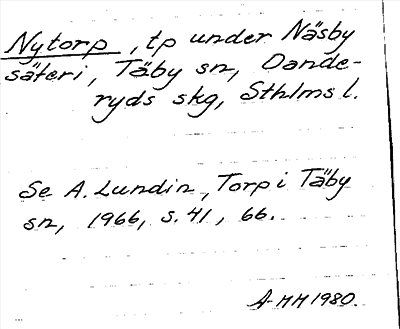 Nytorp, tp under Näsby
säteri, Täby sn, Dande-
ryds skg, Sthlms l.
Se A. Lundin, Torp i Täby
sn, 1966, s. 41, 66.
A-MH 1980.